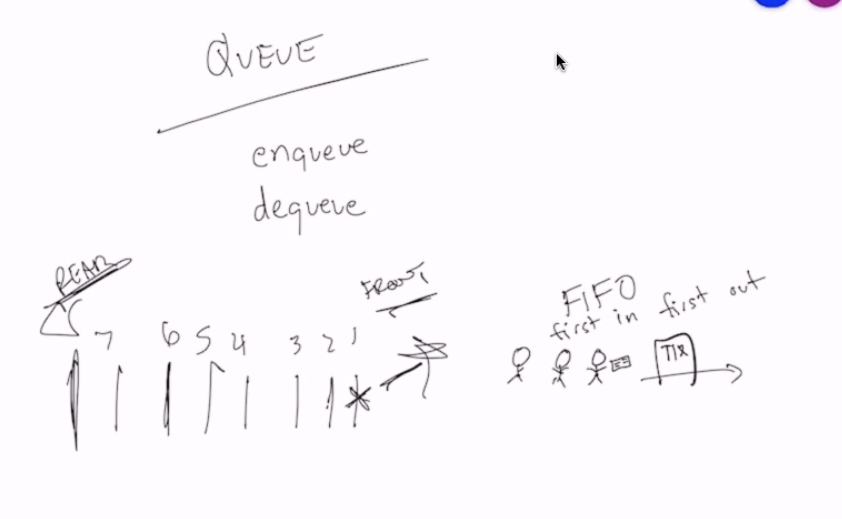 QUEUE
enqueue
dequeue
REAR
FRONT
7 6 5 4 3 2 1
FIFO
first in first out
TIX